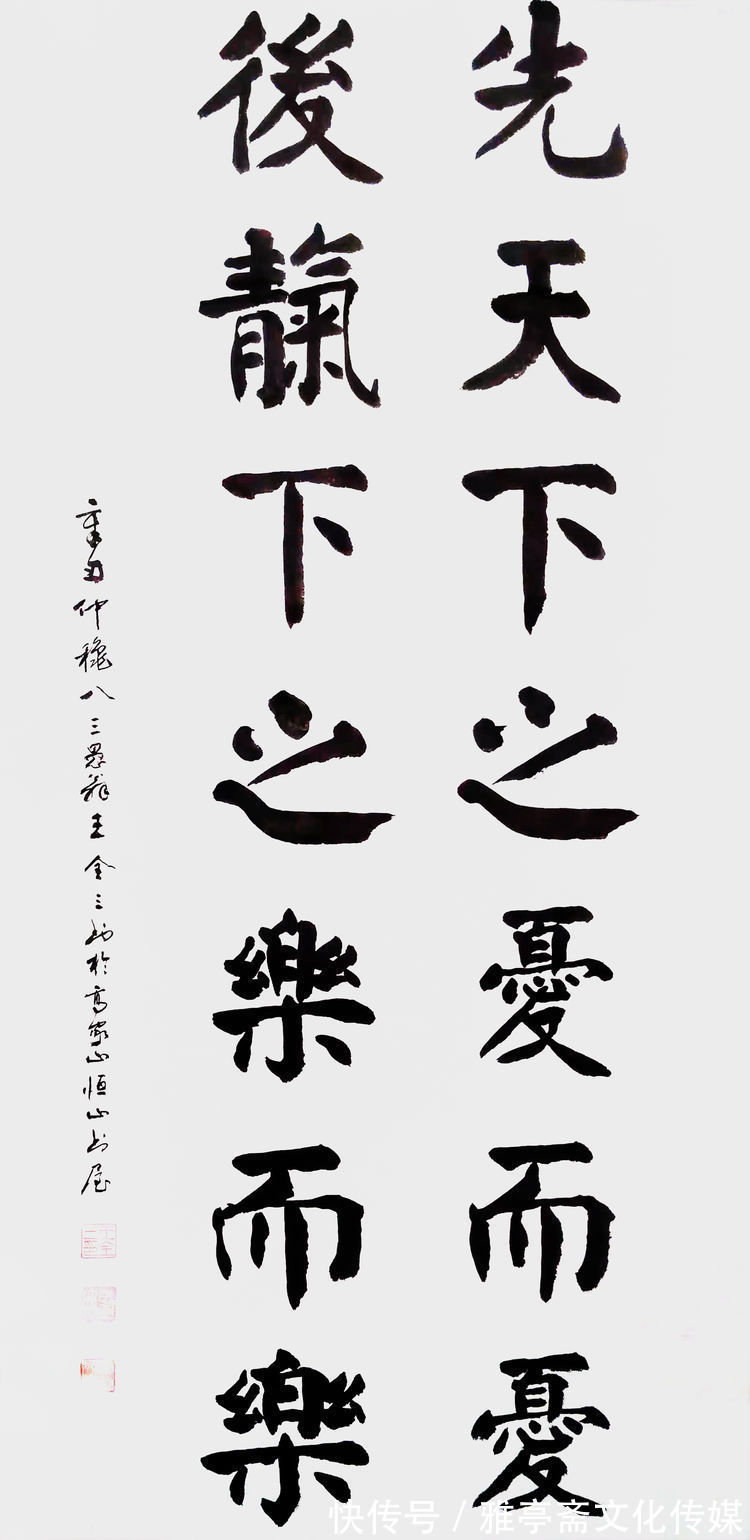 先天下之憂而憂
後靝下之樂而樂
辛丑仲穐八三愚翁王金三书於高家山恒山书屋
快传号 / 雅亭斋文化传媒